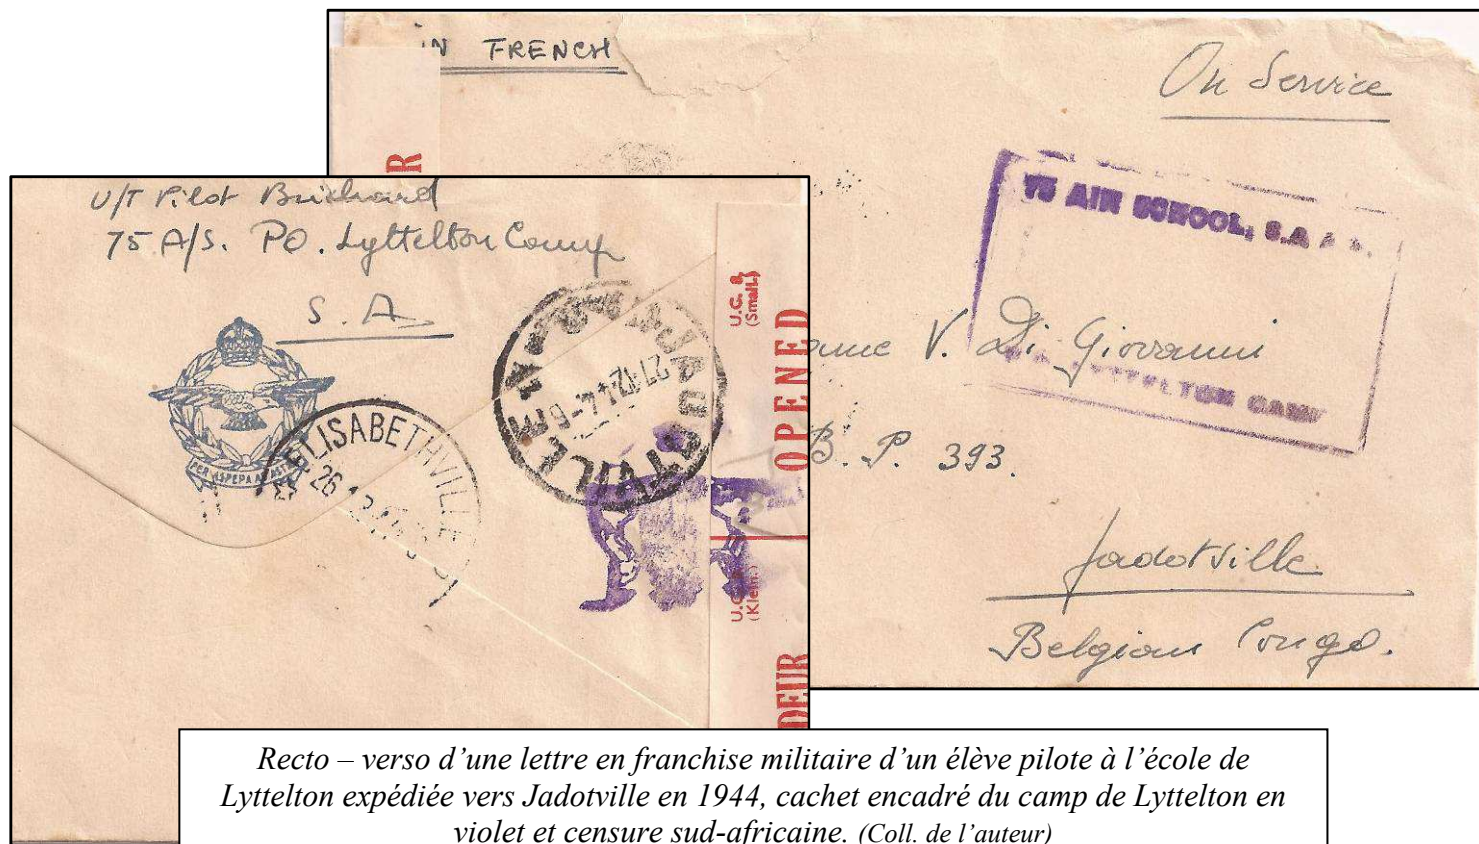 IN FRENCH
On Service
75 AIR SCHOOL, S.A.A.F.
LYTTELTON CAMP
V. Di Giovanni
B. P. 393.
Jadotville
Belgian Congo.
R
U/T Pilot Brichard
75 A/S. PO. Lyttelton Camp
S. A
PER ASPERA AD ASTRA
ELISABETHVILLE
26
JADOTVILLE
27.12.44-
U.C. 8.
(Small)
OPENED
U.C.
(Klein.)
DEUR
Recto – verso d’une lettre en franchise militaire d’un élève pilote à l’école de
Lyttelton expédiée vers Jadotville en 1944, cachet encadré du camp de Lyttelton en
violet et censure sud-africaine. (Coll. de l’auteur)